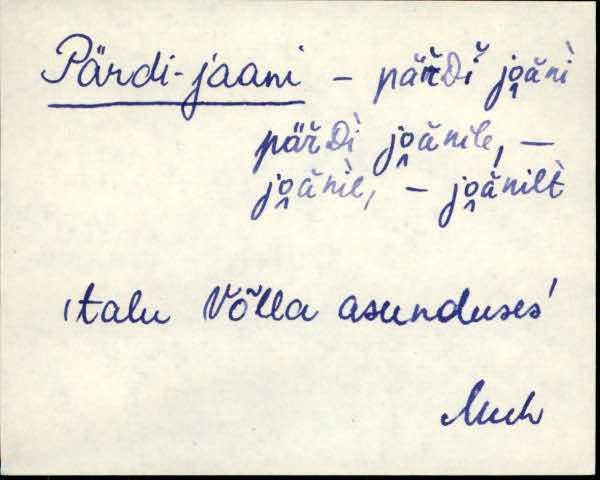 Pärdi-jaani – pär̆Dĭ jo̭ănì
pär̆Dì jo̭ănile, –
jo̭ănìl, – jo̭ănilt̀
'talu Võlla asunduses'
Muh